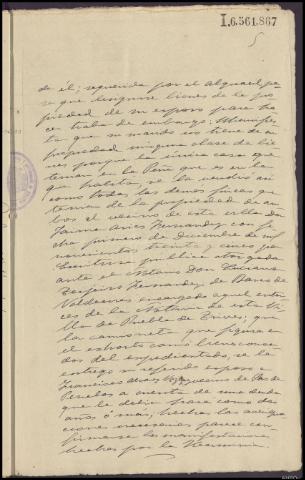 I.6.561.867
5
de él; requerida por el alguacil pa-
ra que designase bienes de la pro-
piedad de su esposo para ha-
cer traba de embargo; Manifies-
ta que su marido no tiene de su
propiedad ninguna clase de bie-
nes porque la única casa que
tenían en la Peña que es en la
que habita, se la vendió así
como todas las demás fincas que
tenían de la propiedad de am-
bos al vecino de esta villa Don
Jaime Aries Fernandez con fe-
cha primero de Diciembre de mil
novecientos treinta y cinco por
Escritura pública otorgada
ante el Notario Don
Fernandez, de Barco de
Valdeorras encargado aquel enton-
ces de la Notaría de esta Vi-
lla de Puebla de Trives; que
la camioneta que figura en
el exhorto como bienes conoci-
dos del expedientado, se la
entregó su referido esposo a
Francisco vecino de
a cuenta de una deuda
que le debía hará como dos
años, ó más; hechas las averigua-
ciones necesarias parece con-
firmarse las manifestaciones
hechas por la Herminia.